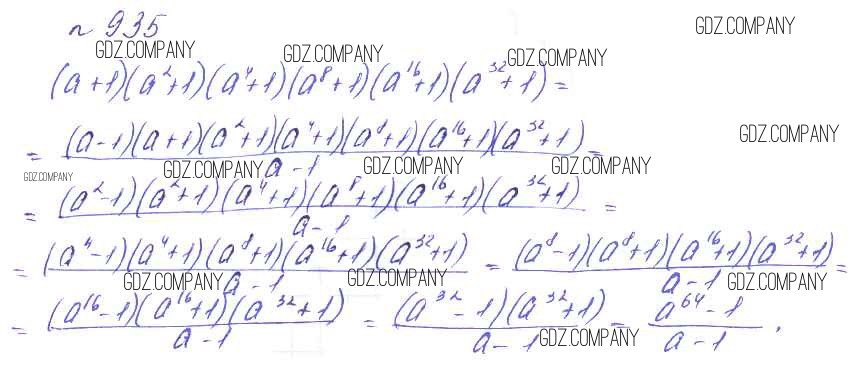 № 935
GDZ.COMPANY GDZ.COMPANY GDZ.COMPANY GDZ.COMPANY
(a+1)(a²+1)(a⁴+1)(a⁸+1)(a¹⁶+1)(a³²+1) =
= (a-1)(a+1)(a²+1)(a⁴+1)(a⁸+1)(a¹⁶+1)(a³²+1) / a-1 = GDZ.COMPANY
GDZ.COMPANY GDZ.COMPANY GDZ.COMPANY GDZ.COMPANY
= (a²-1)(a²+1)(a⁴+1)(a⁸+1)(a¹⁶+1)(a³²+1) / a-1 =
= (a⁴-1)(a⁴+1)(a⁸+1)(a¹⁶+1)(a³²+1) / a-1 = (a⁸-1)(a⁸+1)(a¹⁶+1)(a³²+1) / a-1 =
GDZ.COMPANY GDZ.COMPANY GDZ.COMPANY
= (a¹⁶-1)(a¹⁶+1)(a³²+1) / a-1 = (a³²-1)(a³²+1) / a-1 = a⁶⁴-1 / a-1 .
GDZ.COMPANY